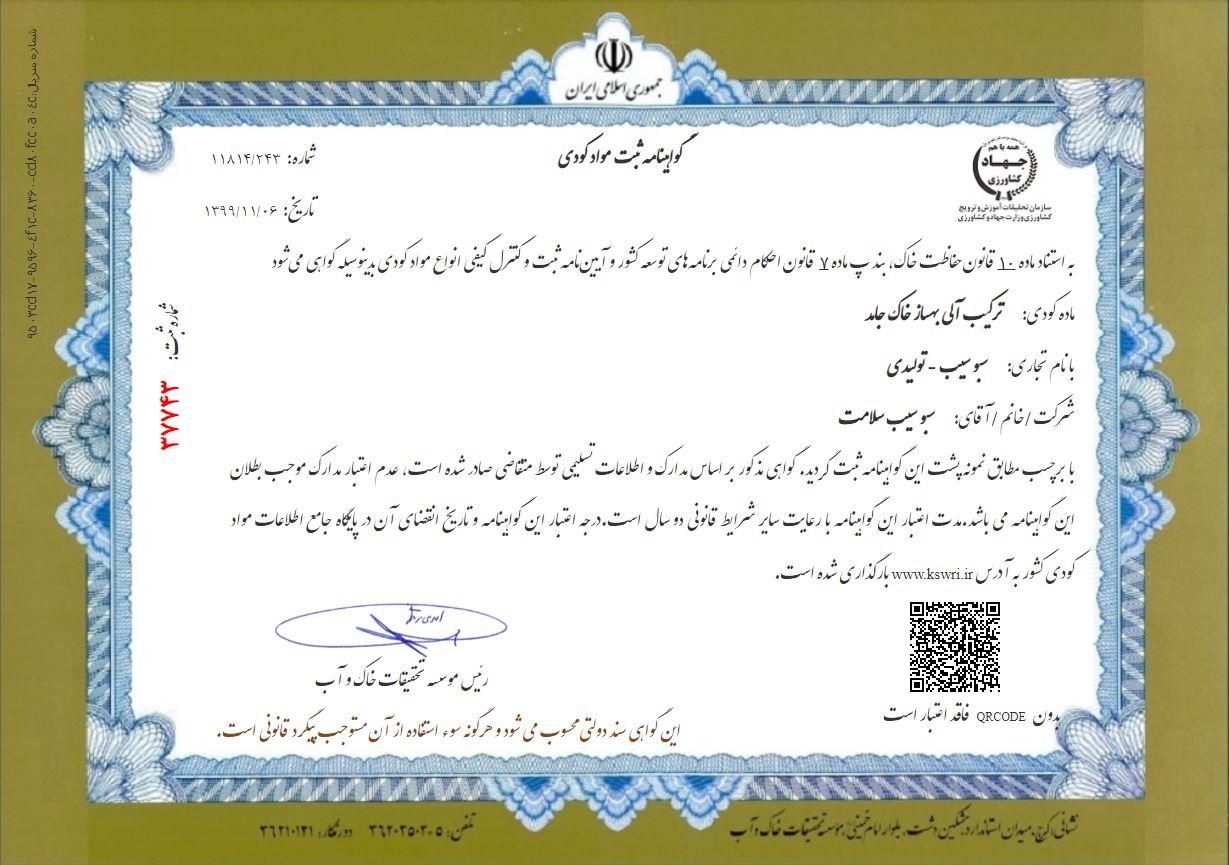 جمهوری اسلامی ایران
همه با هم
جهاد
کشاورزی
سازمان تحقیقات آموزش و ترویج
کشاورزی وزارت جهاد و کشاورزی
گواهینامه ثبت مواد کودی
شماره: ۱۱۸۱۴/۲۴۳
تاریخ: ۱۳۹۹/۱۱/۰۶
به استناد ماده ۱۰ قانون حفاظت خاک، بند پ ماده ۷ قانون احکام دائمی برنامه های توسعه کشور و آیین‌نامه ثبت و کنترل کیفی انواع مواد کودی بدینوسیله گواهی می‌شود
ماده کودی: ترکیب آلی بهساز خاک جامد
با نام تجاری: سبو سیب - تولیدی
شرکت / خانم / آقای: سبو سیب سلامت
با برچسب مطابق نمونه پشت این گواهینامه ثبت گردید. گواهی مذکور بر اساس مدارک و اطلاعات تسلیمی توسط متقاضی صادر شده است، عدم اعتبار مدارک موجب بطلان
این گواهینامه می باشد.مدت اعتبار این گواهینامه با رعایت سایر شرایط قانونی دو سال است.درجه اعتبار این گواهینامه و تاریخ انقضای آن در پایگاه جامع اطلاعات مواد
کودی کشور به آدرس www.kswri.ir بارگذاری شده است.
شماره ثبت: ۳۷۷۴۳
رئیس موسسه تحقیقات خاک و آب
بدون QRCODE فاقد اعتبار است
این گواهی سند دولتی محسوب می شود و هرگونه سوء استفاده از آن مستوجب پیگرد قانونی است.
نشانی: کرج، میدان استاندارد، مشکین دشت، بلوار امام خمینی، موسسه تحقیقات خاک و آب
تلفن: ۵-۳۶۲۰۲۵۰۲ دورنگار: ۳۶۲۱۰۱۲۱